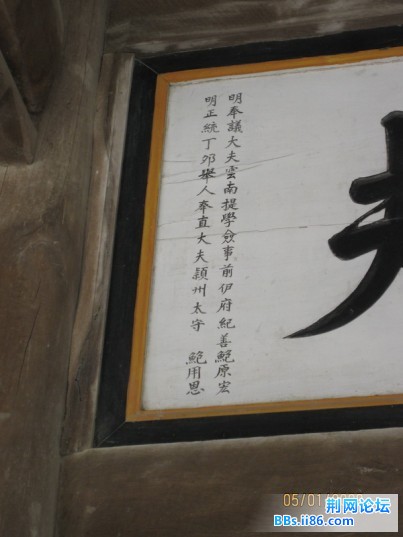 明奉議大夫雲南提學僉事前伊府紀善鮑原宏
明正統丁卯舉人奉直大夫潁州太守 鮑用思
夫
05/01/
荆网论坛
BBs.ii86.com